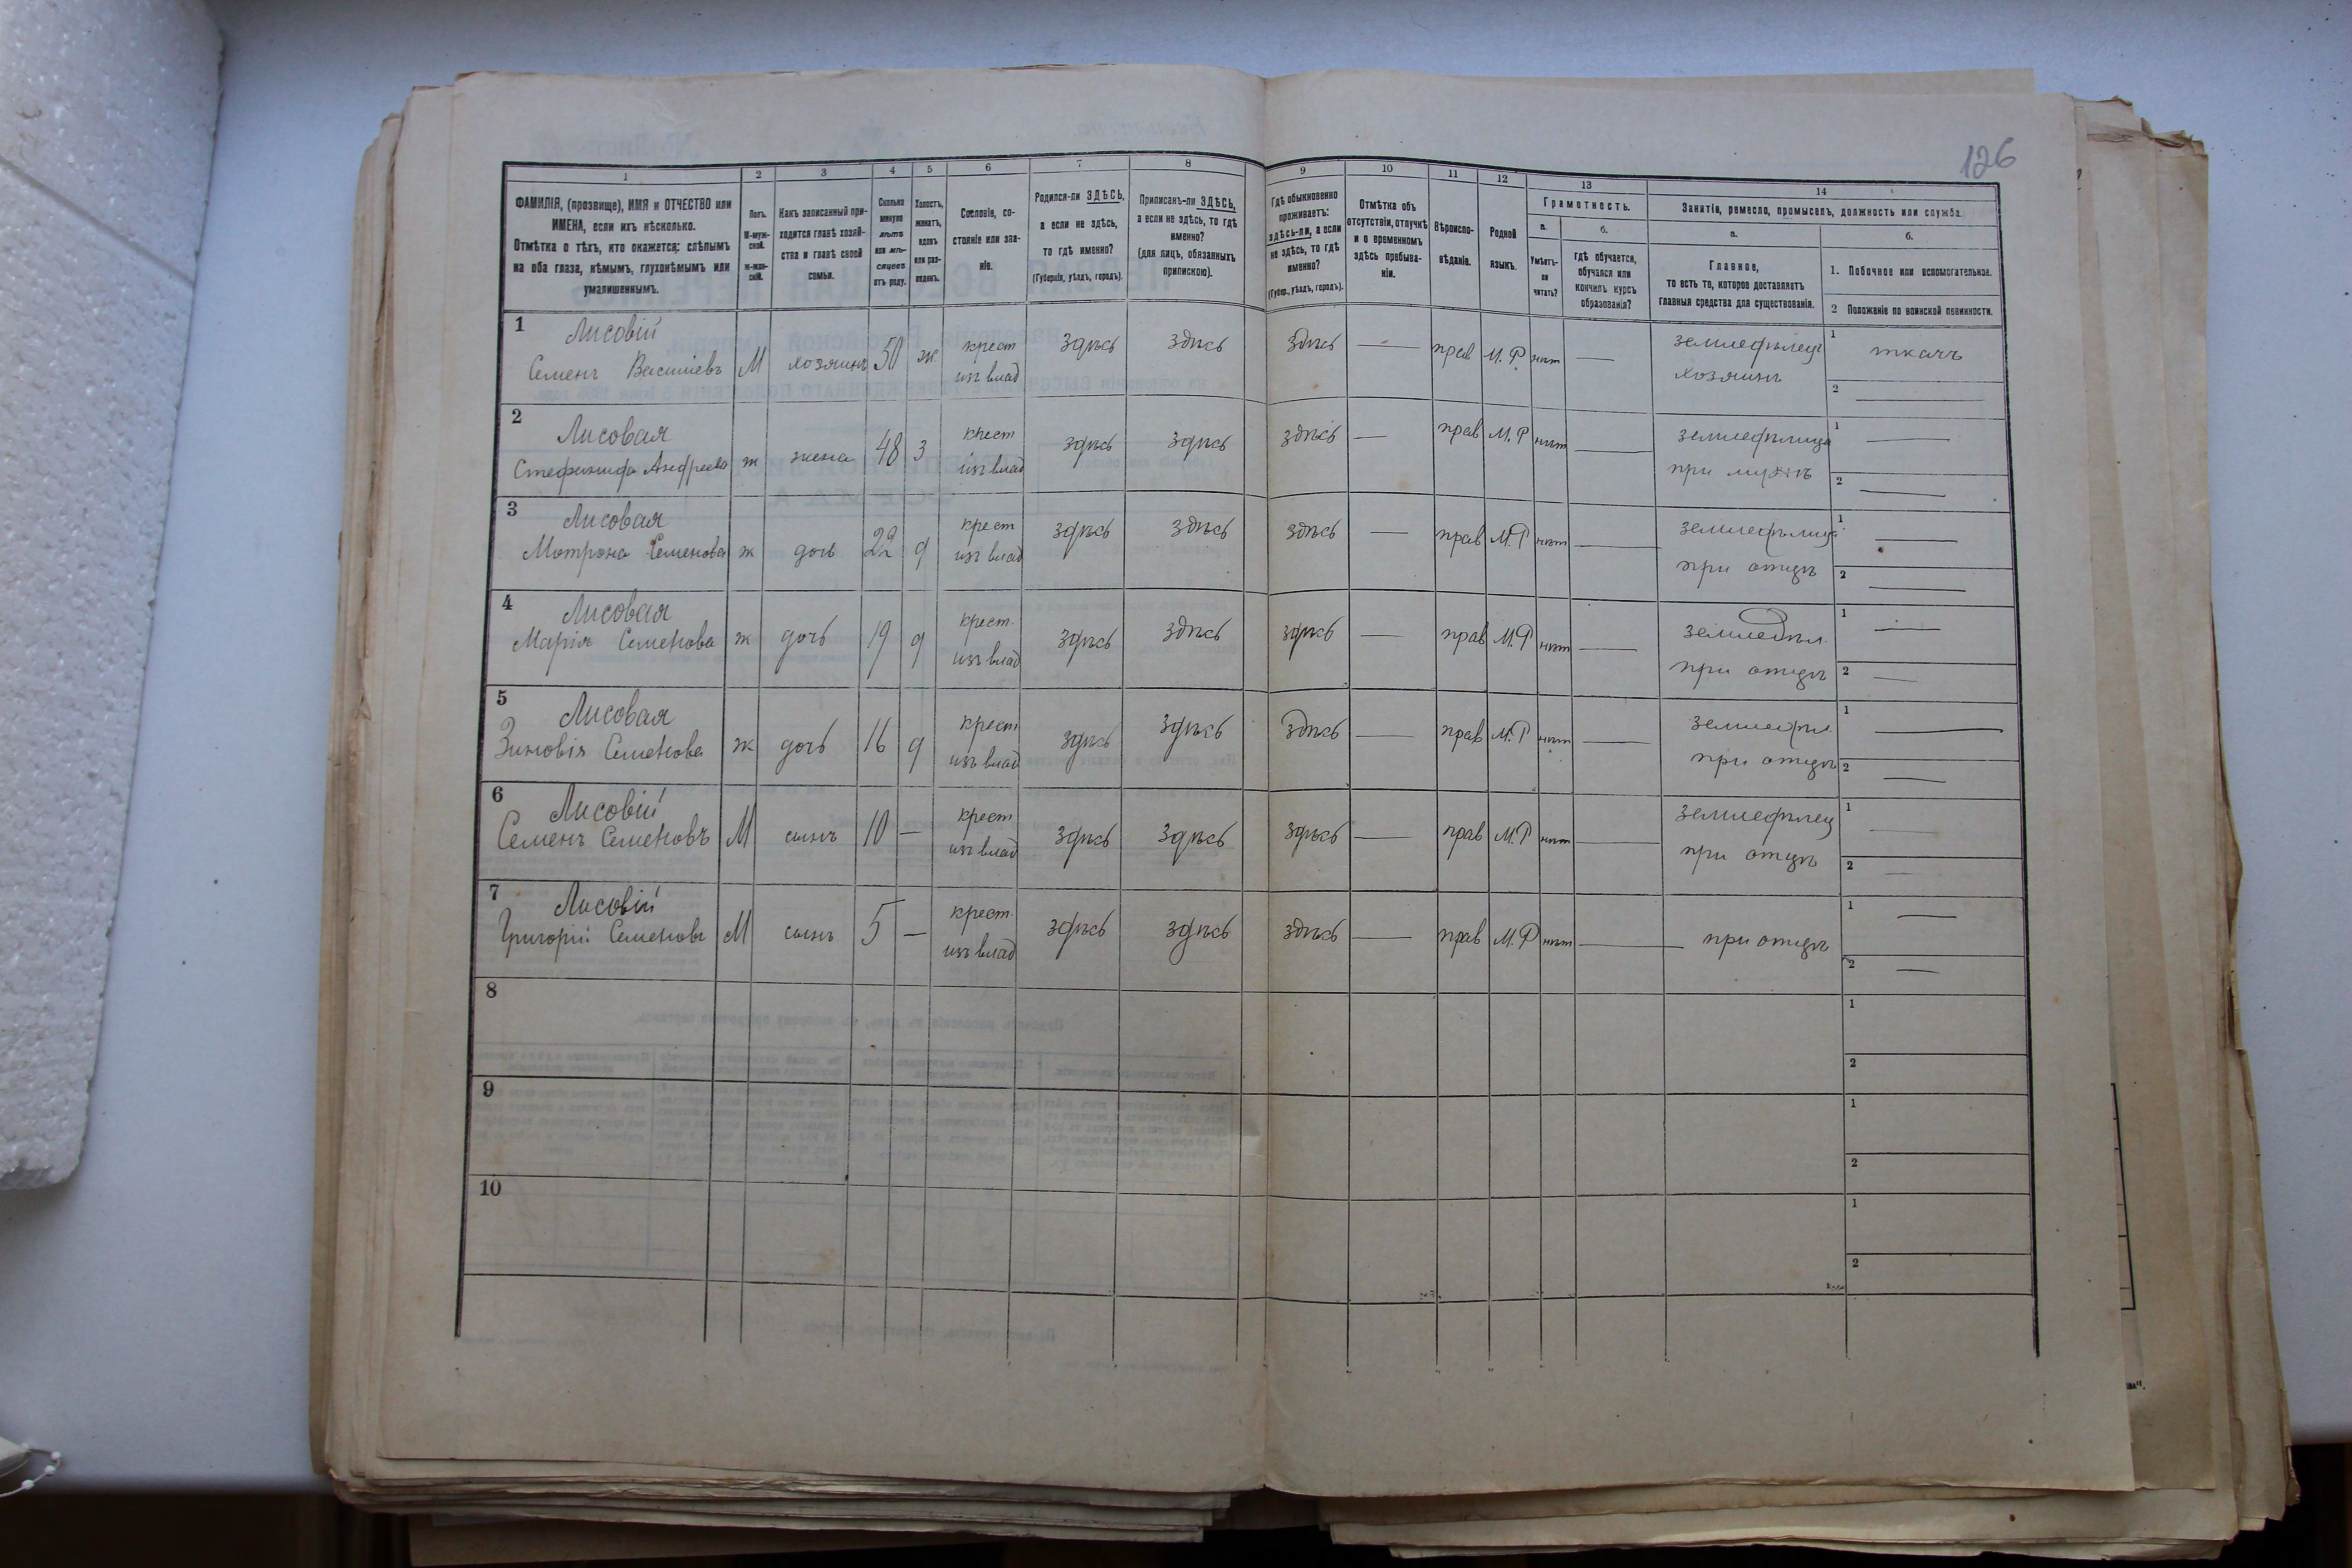 126
1 2 3 4 5 6 7 8 9 10 11 12 13 14
ФАМИЛІЯ, (прозвище), ИМЯ и ОТЧЕСТВО или
ИМЕНА, если ихъ нѣсколько.
Отмѣтка о тѣхъ, кто окажется: слѣпымъ
на оба глаза, нѣмымъ, глухонѣмымъ или
умалишеннымъ.
Полъ.
М-муж-
ской.
ж-жен-
скій.
Какъ записанный при-
ходится главѣ хозяй-
ства и главѣ своей
семьи.
Сколько
минуло
лѣтъ
или мѣ-
сяцевъ
отъ роду.
Холостъ,
женатъ,
вдовъ
или раз-
веденъ.
Сословіе, со-
стояніе или зва-
ніе.
Родился-ли ЗДѢСЬ,
а если не здѣсь,
то гдѣ именно?
(Губернія, уѣздъ, городъ).
Приписанъ-ли ЗДѢСЬ,
а если не здѣсь, то гдѣ
именно?
(для лицъ, обязанныхъ
припискою).
Гдѣ обыкновенно
проживаетъ:
здѣсь-ли, а если
не здѣсь, то гдѣ
именно?
(Губер., уѣздъ, городъ).
Отмѣтка объ
отсутствіи, отлучкѣ
и о временномъ
здѣсь пребыва-
ніи.
Вѣроиспо-
вѣданіе.
Родной
языкъ.
Грамотность.
а.
Умѣетъ-
ли
читать?
б.
гдѣ обучается,
обучался или
кончилъ курсъ
образованія?
Занятіе, ремесло, промыселъ, должность или служба.
а.
Главное,
то есть то, которое доставляетъ
главныя средства для существованія.
б.
1. Побочное или вспомогательное.
2 Положеніе по воинской повинности.
1 Лисовій
Семенъ Василіевъ М хозяинъ 50 ж крест
изъ влад здѣсь здѣсь здѣсь — прав М.Р нѣт — земледѣлецъ
хозяинъ 1 ткачъ
2 —
2 Лисовая
Стефанида Андреева ж жена 48 з крест
изъ влад здѣсь здѣсь здѣсь — прав М.Р нѣт — земледѣлица
при мужѣ 1 —
2 —
3 Лисовая
Мотрона Семенова ж дочь 22 д крест
изъ влад здѣсь здѣсь здѣсь — прав М.Р нѣт — земледѣлица
при отцѣ 1 —
2 —
4 Лисовая
Марія Семенова ж дочь 19 д крест.
изъ влад здѣсь здѣсь здѣсь — прав М.Р нѣт — земледѣл.
при отцѣ 1 —
2 —
5 Лисовая
Зиновія Семенова ж дочь 16 д крест
изъ влад здѣсь здѣсь здѣсь — прав М.Р нѣт — земледѣл.
при отцѣ 1 —
2 —
6 Лисовій
Семенъ Семеновъ М сынъ 10 — крест
изъ влад здѣсь здѣсь здѣсь — прав М.Р нѣт — земледѣлец
при отцѣ 1 —
2 —
7 Лисовій
Григорій Семеновъ М сынъ 5 — крест.
изъ влад здѣсь здѣсь здѣсь — прав М.Р нѣт — при отцѣ 1 —
2 —
8 1
2
9 1
2
10 1
2